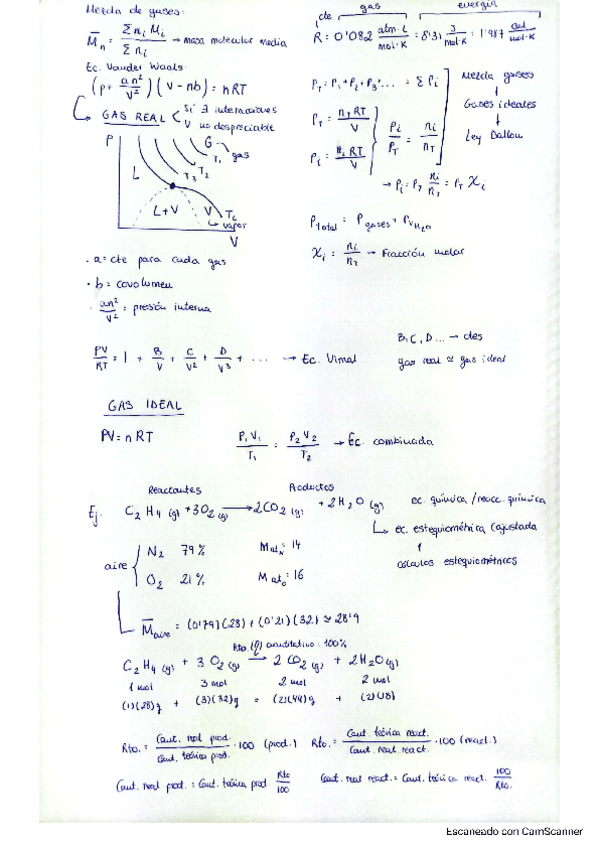 Mezcla de gases:
M̄n = Σ ni Mi / Σ ni → masa molecular media
Ec. Vander Waals:
(p + an²/V²) (V - nb) = nRT
GAS REAL < Si ∃ interacciones
V no despreciable
P
G → gas
T1
T3 T2
L
L+V
V
Tc
vapor
V
· a = cte para cada gas
· b = covolumen
· an²/V² = presión interna
PV/RT = 1 + B/V + C/V² + D/V³ + ... → Ec. Virial
cte.
gas
energía
R = 0'082 atm·L/mol·K = 8'31 J/mol·K = 1'987 cal/mol·K
PT = P1 + P2 + P3 + ... = Σ Pi
PT = nT RT / V
Pi = ni RT / V
Pi/PT = ni/nT
Mezcla gases
↓
Gases ideales
↓
Ley Dalton
→ Pi = PT ni/nT = PT Xi
Ptotal = Pgases + PVH2O
Xi = ni/nT → Fracción molar
B, C, D ... → ctes
gas real ≈ gas ideal
GAS IDEAL
PV = nRT
P1V1/T1 = P2V2/T2 → Ec. combinada
Reactantes
Productos
Ej. C2H4 (g) + 3O2 (g) → 2CO2 (g) + 2H2O (g)
ec. química / reacc. química
↳ ec. estequiométrica (ajustada
↑
cálculos estequiométricos
aire
N2 79%
Mat N: 14
O2 21%
Mat O: 16
M̄aire = (0'79)(28) + (0'21)(32) ≈ 28'9
cuantitativo: 100%
C2H4 (g) + 3O2 (g) → 2CO2 (g) + 2H2O (g)
1 mol 3 mol 2 mol 2 mol
(1)(28)g + (3)(32)g = (2)(44)g + (2)(18)
Rto. = Cant. real prod. / Cant. teórica prod. · 100 (prod.)
Rto. = Cant. teórica react. / Cant. real react. · 100 (react.)
Cant. real prod. = Cant. teórica prod Rto/100
Cant. real react. = Cant. teórica react. 100/Rto.
Escaneado con CamScanner